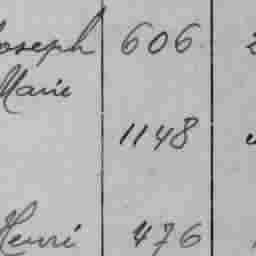 Joseph 606
Marie
1148
Henri 476